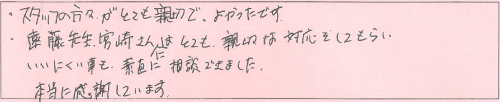 ・スタッフの方々がとても親切で、よかったです。
・遠藤先生、宮崎さんにはとても、親切な対応をしてもらい
いいにくい事も、素直に相談できました。
本当に感謝しています。